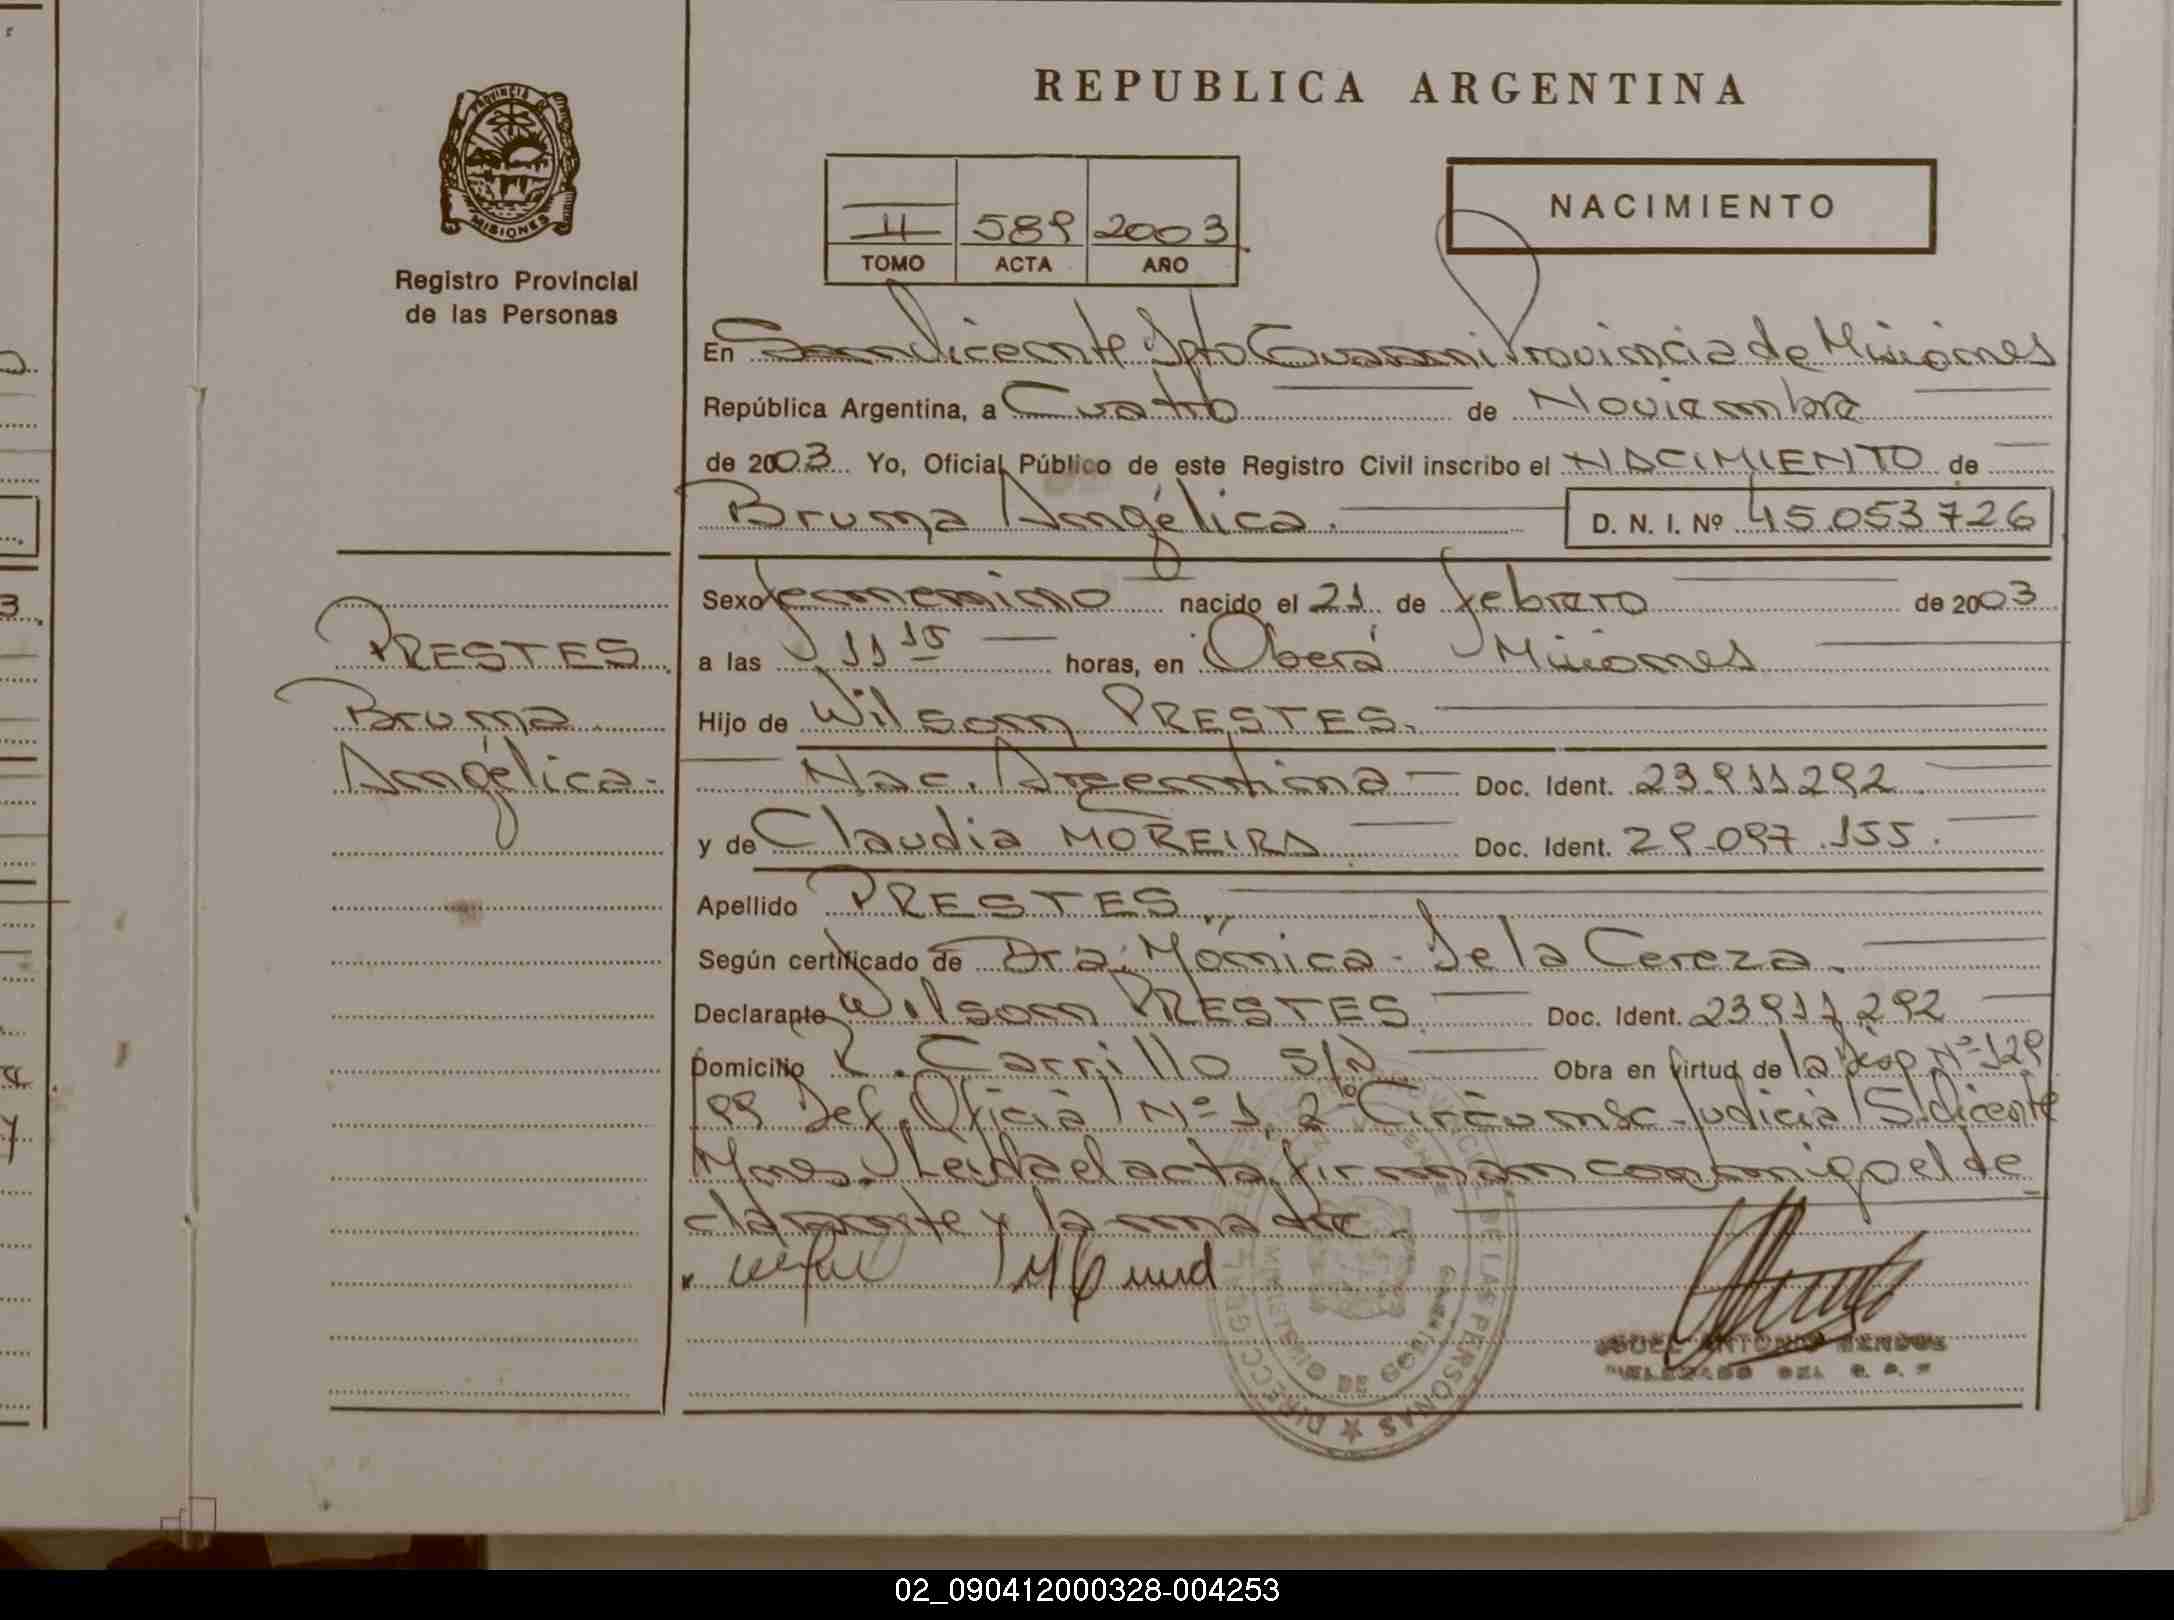 REPUBLICA ARGENTINA
PROVINCIA DE
MISIONES
Registro Provincial
de las Personas
II 589 2003
TOMO ACTA AÑO
NACIMIENTO
En San Vicente Dpto Guaraní Provincia de Misiones
República Argentina, a Cuatro de Noviembre
de 2003 Yo, Oficial Público de este Registro Civil inscribo el NACIMIENTO de
Bruna Angélica. D. N. I. Nº 45.053.726
Sexo femenino nacido el 21 de febrero de 2003
a las 11 15 horas, en Oberá Misiones
Hijo de Wilson PRESTES.
Nac. Argentina Doc. Ident. 23.911.292
y de Claudia MOREIRA Doc. Ident. 29.097.155.
Apellido PRESTES
Según certificado de Dra. Mónica De la Cereza.
Declarante Wilson PRESTES Doc. Ident. 23911292
Domicilio R. Carrillo S/N Obra en virtud de la Disp Nº 129
99 Def. Oficial Nº 1, 2º Circunsc. Judicial S. Vicente
Mnes. Leida el acta, firman conmigo el de
clarante y la madre.
PRESTES
Bruna
Angélica.
ANTONIO
DELEGADO DEL R. P. P.
02_090412000328-004253